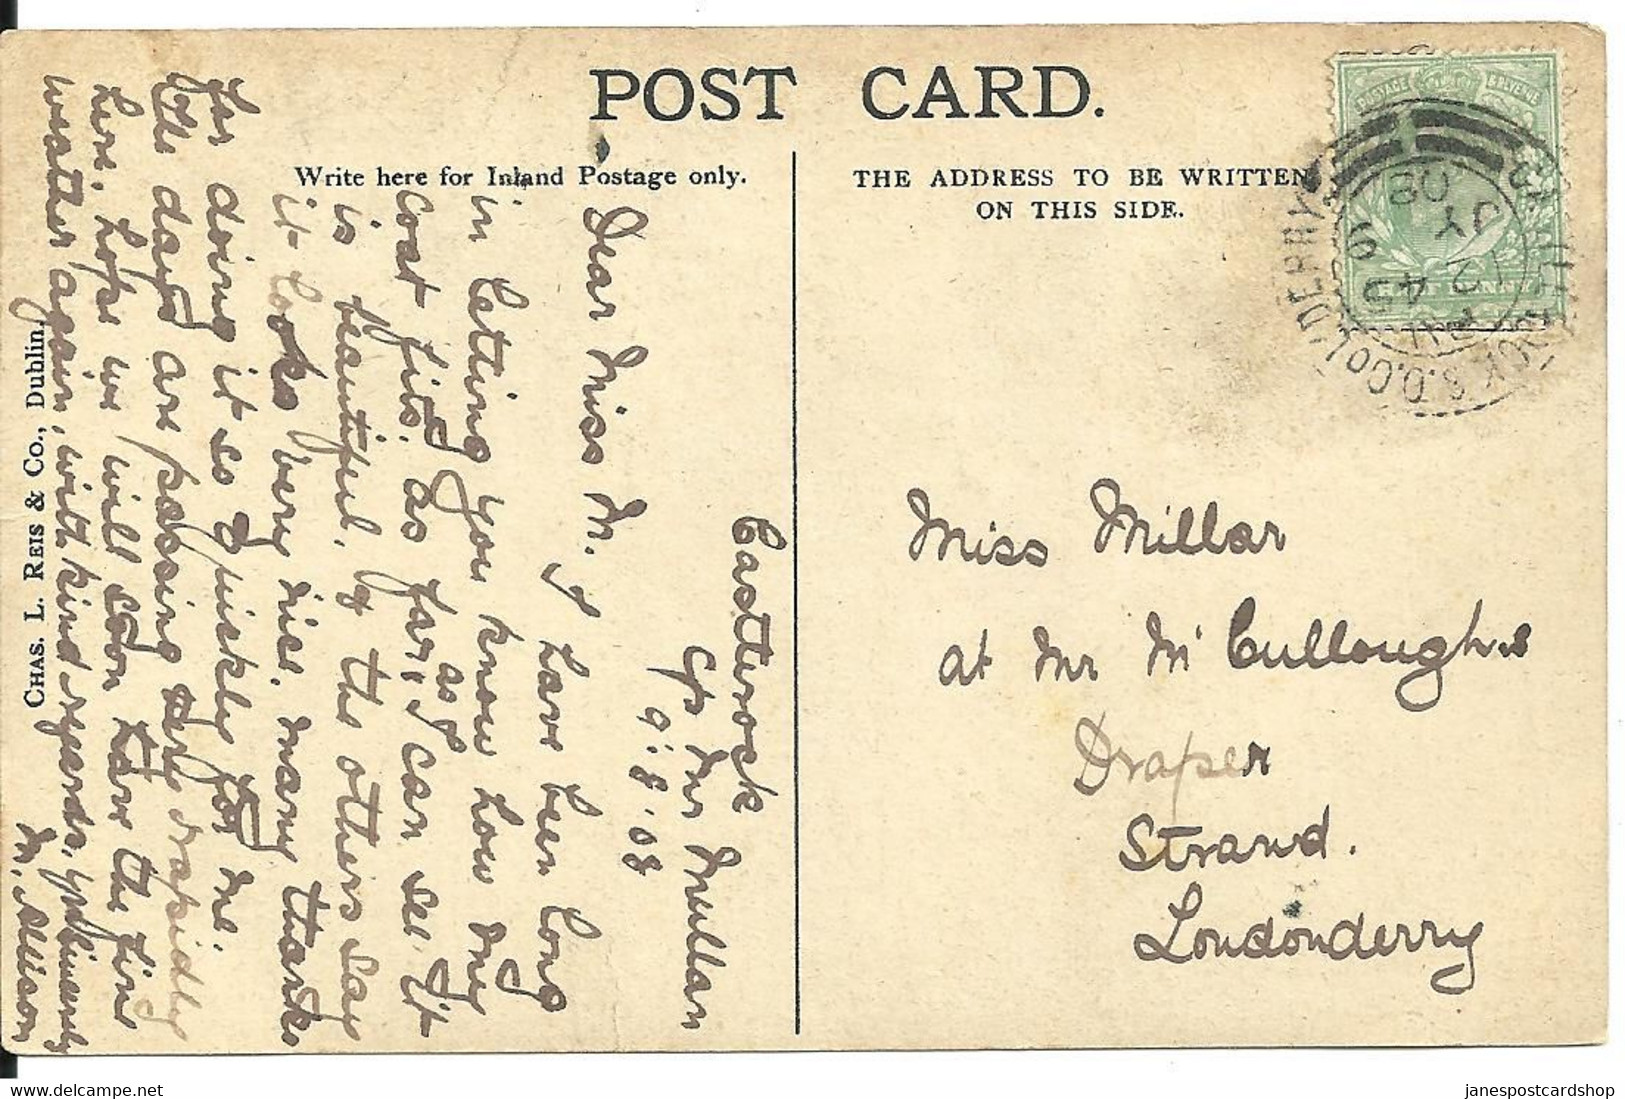 POST CARD.
Write here for Inland Postage only.
THE ADDRESS TO BE WRITTEN
ON THIS SIDE.
POSTAGE & REVENUE
CASTLEROCK S.O. CO. L'DERRY
4 45
JY 12
08
Castlerock
c/o Mr Mullan
9.8.08
Dear Miss M. I have been long
in letting you know how my
coat fits. as far, as I can see it
is beautiful, & the others say
it looks very nice. many thanks
for doing it so quickly for me.
The days are passing very rapidly
here. hope we will soon have the fine
weather again, with kind regards, yrs sincerely
M. Allison
Miss Millar
at Mr McCullough's
Draper
Strand.
Londonderry
CHAS. L. REIS & CO., DUBLIN.
janespostcardshop